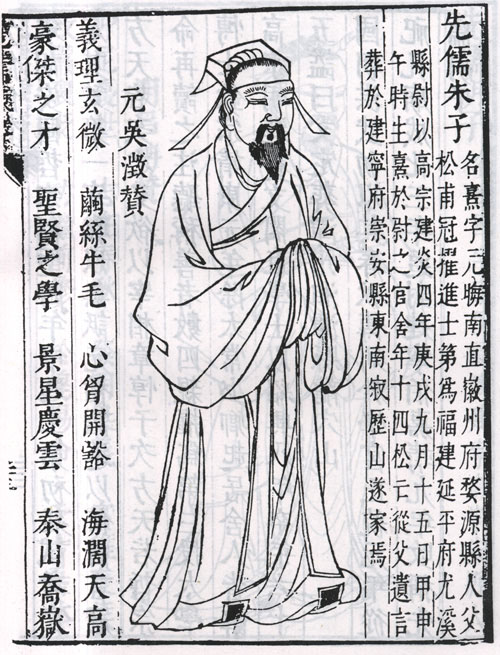 先儒朱子 名熹字元晦南直徽州府婺源縣人父
松甫冠擢進士第爲福建延平府尤溪
縣尉以高宗建炎四年庚戌九月十五日甲申
午時生熹於尉之官舍年十四松亡從父遺言
葬於建寧府崇安縣東南寂歷山遂家焉
元吳澂贊
義理玄微 繭絲牛毛 心胷開豁 海濶天高
豪傑之才 聖賢之學 景星慶雲 泰山喬嶽